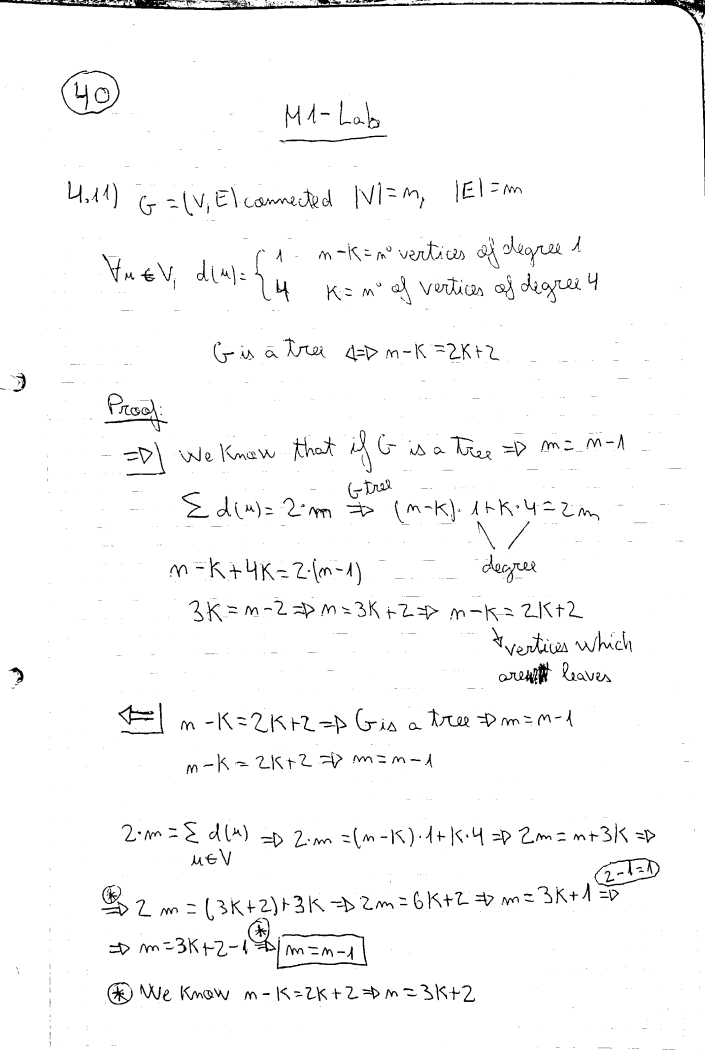 40
M1-Lab
4.11) G = (V, E) connected |V| = n, |E| = m
∀u ∈ V, d(u) = { 1 n-K = nº vertices of degree 1
4 K = nº of vertices of degree 4
G is a tree ⇔ n-K = 2K+2
Proof:
⇒| We Know that if G is a Tree ⇒ m = n-1
Σ d(u) = 2·m ⇒ (n-K)·1+K·4 = 2m
G tree
degree
n-K+4K = 2·(n-1)
3K = n-2 ⇒ n = 3K+2 ⇒ n-K = 2K+2
vertices which
are leaves
⇐| n-K = 2K+2 ⇒ G is a tree ⇒ m = n-1
n-K = 2K+2 ⇒ m = n-1
2·m = Σ d(u) ⇒ 2·m = (n-K)·1+K·4 ⇒ 2m = n+3K ⇒
u∈V
2-1=1
⊛⇒ 2m = (3K+2)+3K ⇒ 2m = 6K+2 ⇒ m = 3K+1 ⇒
⇒ m = 3K+2-1 ⊛⇒ m = n-1
⊛ We Know n-K = 2K+2 ⇒ n = 3K+2